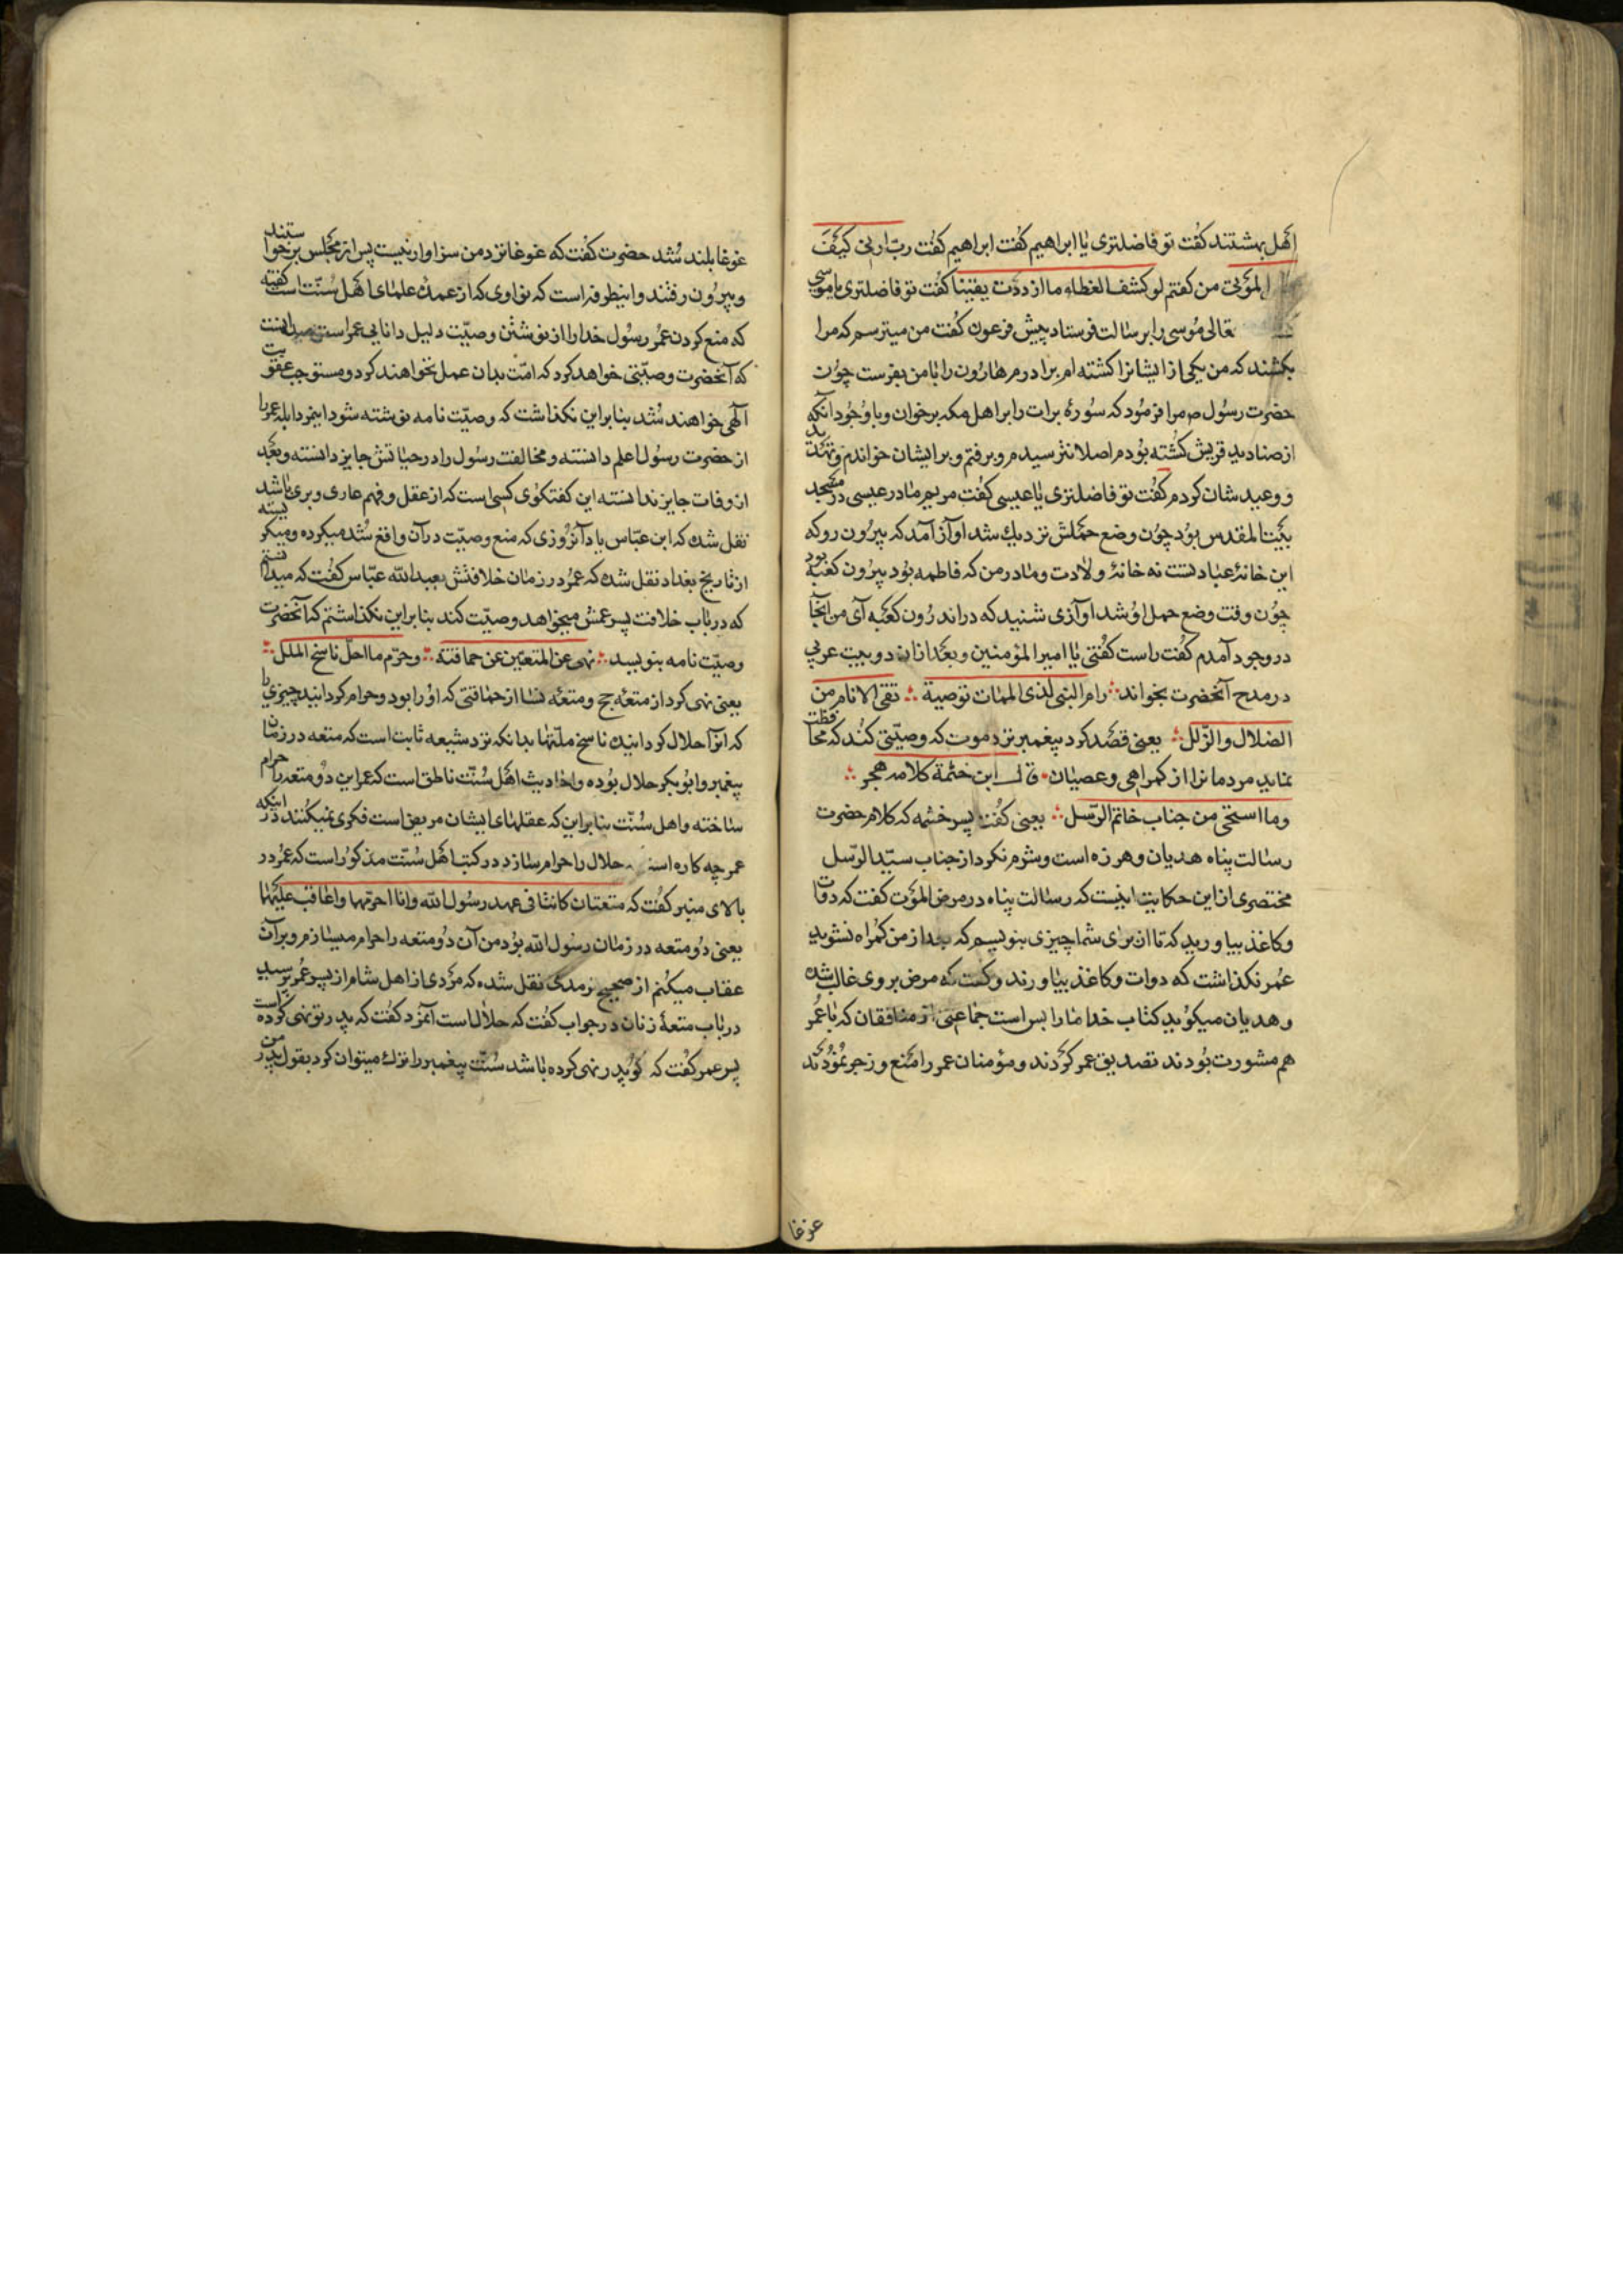 اهل بهشتند كفت تو فاضلتری یا ابراهیم كفت ابراهیم كفت ربّ ارنی كیف
المؤتی من كفتم لو كشف الغطاء ما ازددت یقینا كفت تو فاضلتری یا موسی
تعالی موسی را برسالت فرستاد پیش فرعون كفت من میترسم كه مرا
بكشند كه من یكی از ایشانرا كشته ام برادرم هارون را با من بفرست چون
حضرت رسول ص مرا فرمود كه سورهٔ برات را بر اهل مكه برخوان و با وجود آنكه
از صنادید قریش كشته بودم اصلا نترسیدم و برفتم و بر ایشان خواندم و تهدید
و وعید شان كردم كفت تو فاضلتری یا عیسی كفت مریم مادر عیسی در مسجد
بیت المقدس بود چون وضع حملش نزدیك شد اوآز آمد كه بیرون رو كه
این خانهٔ عبادتست نه خانهٔ ولادت و مادر من كه فاطمه بود بیرون كعبه بود
چون وقت وضع حمل او شد اوآزی شنید كه در اندرون كعبه آی من آنجا
در وجود آمدم كفت راست كفتی یا امیر المؤمنین و بعد ازان دو بیت عربی
در مدح آنحضرت بخواند رام النبی لذی الممات توصیة تقی الانام من
الضلال والزلل یعنی قصد كرد پیغمبر نزد موت كه وصیّتی كند كه محافظت
نماید مردمانرا از كمراهی و عصیان قال ابن خثمة كلامه هجر
وما استحی من جناب خاتم الرّسل یعنی كفت پسر خثمه كه كلام حضرت
رسالت پناه هدیان و هرزه است و شرم نكرد از جناب سیّد الرّسل
مختصری از این حكایت اینست كه رسالت پناه در مرض الموت كفت كه دوات
و كاغذ بیاورید كه تا ان برای شما چیزی بنویسم كه بعد از من كمراه نشوید
عمر نكذاشت كه دوات و كاغذ بیاورند و كفت كه مرض بر وی غالب شده
و هدیان میكوید كتاب خدا ما را بس است جماعتی از منافقان كه با عمر
هم مشورت بودند تصدیق عمر كردند و مؤمنان عمر را منع و زجر نمودند
غوغا
غوغا بلند شد حضرت كفت كه غوغا نزد من سزاوار نیست پس از مجلس برخواستند
و بیرون رفتند و اینطرفه است كه نواوی كه از عمدهٔ علمای اهل سنّت است كفته
كه منع كردن عمر رسول خدا را از نوشتن وصیّت دلیل دانایی عمر است
كه آنحضرت وصیّتی خواهد كرد كه امّت بدان عمل نخواهند كرد و مستوجب عقوبت
آلهی خواهند شد بنابراین نكذاشت كه وصیّت نامه نوشته شود این مرد ابله عمر را
از حضرت رسول اعلم دانسته و مخالفت رسول را در حیاتش جایز دانسته و بعد
از وفات جایز ندانسته این كفتكوی كسی است كه از عقل و فهم عاری و بری باشد
نقل شده كه ابن عبّاس یاد آنروزی كه منع وصیّت در آن واقع شد میكرده و میكریسته
از تاریخ بغداد نقل شده كه عمر در زمان خلافتش بعبد الله عبّاس كفت كه میدانستم
كه در باب خلافت پسر عمش میخواهد وصیّت كند بنابراین نكذاشتم كه آنحضرت
وصیّت نامه بنویسد نهی عن المتعتین عن حماقته وحرّم ما احلّ ناسخ الملل
یعنی نهی كرد از متعهٔ حج و متعهٔ نسا از حماقتی كه او را بود و حرام كردانید چیزی را
كه انرآ حلال كردانیده ناسخ ملّتها بدانكه نزد شیعه ثابت است كه متعه در زمان
پیغمبر و ابوبكر حلال بوده و احادیث اهل سنّت ناطق است كه عمر این دو متعه را حرام
ساخته و اهل سنّت بنابراین كه عقلهای ایشان مریض است فكری نمیكنند در اینكه
عمر چه كاره است حلال را حرام سازد در كتب اهل سنّت مذكور است كه عمر در
بالای منبر كفت كه متعتان كانتا فی عهد رسول الله وانا احرّمهما واعاقب علیهما
یعنی دو متعه در زمان رسول الله بود من آن دو متعه را حرام میسازم و بر آن
عقاب میكنم از صحیح ترمدی نقل شده كه مردی از اهل شام از پسر عمر پرسید
در باب متعهٔ زنان در جواب كفت كه حلال است آنمرد كفت كه پدر تو نهی كرده است
پسر عمر كفت كه كو پدر نهی كرده باشد سنّت پیغمبر را ترك میتوان كرد بقول پدر من